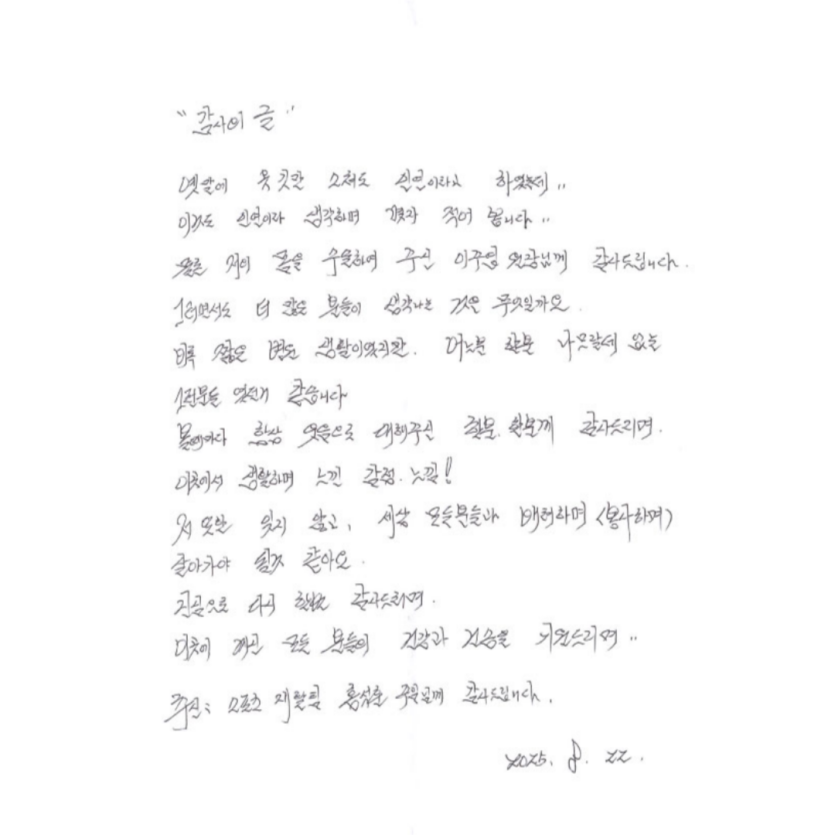 "감사의 글"
옛말에 옷깃만 스쳐도 인연이라고 하였는데..
이것도 인연이라 생각하며 몇자 적어 봅니다..
저의 몸을 수술하여 주신 이주엽 원장님께 감사드립니다.
그러면서도 더 많은 분들이 생각나는 것은 무엇일까요.
비록 짧은 병원 생활이었지만. 어느분 한분 나무랄데 없는
그런분들 이었던것 같습니다
항상 웃음으로 대해주신 한분.한분께 감사드리며.
이곳에서 생활하며 느낀 감정.느낌!
잊지 않고, 세상 모든분들과 배려하며 (봉사하며)
살아가야 될것 같아요.
진심으로 다시 한번 감사드리며.
이곳에 계신 모든 분들의 건강과 건승을 기원드리며..
추신: 스포츠 재활팀 홍석훈 감사드립니다.
2025. 8. 22.